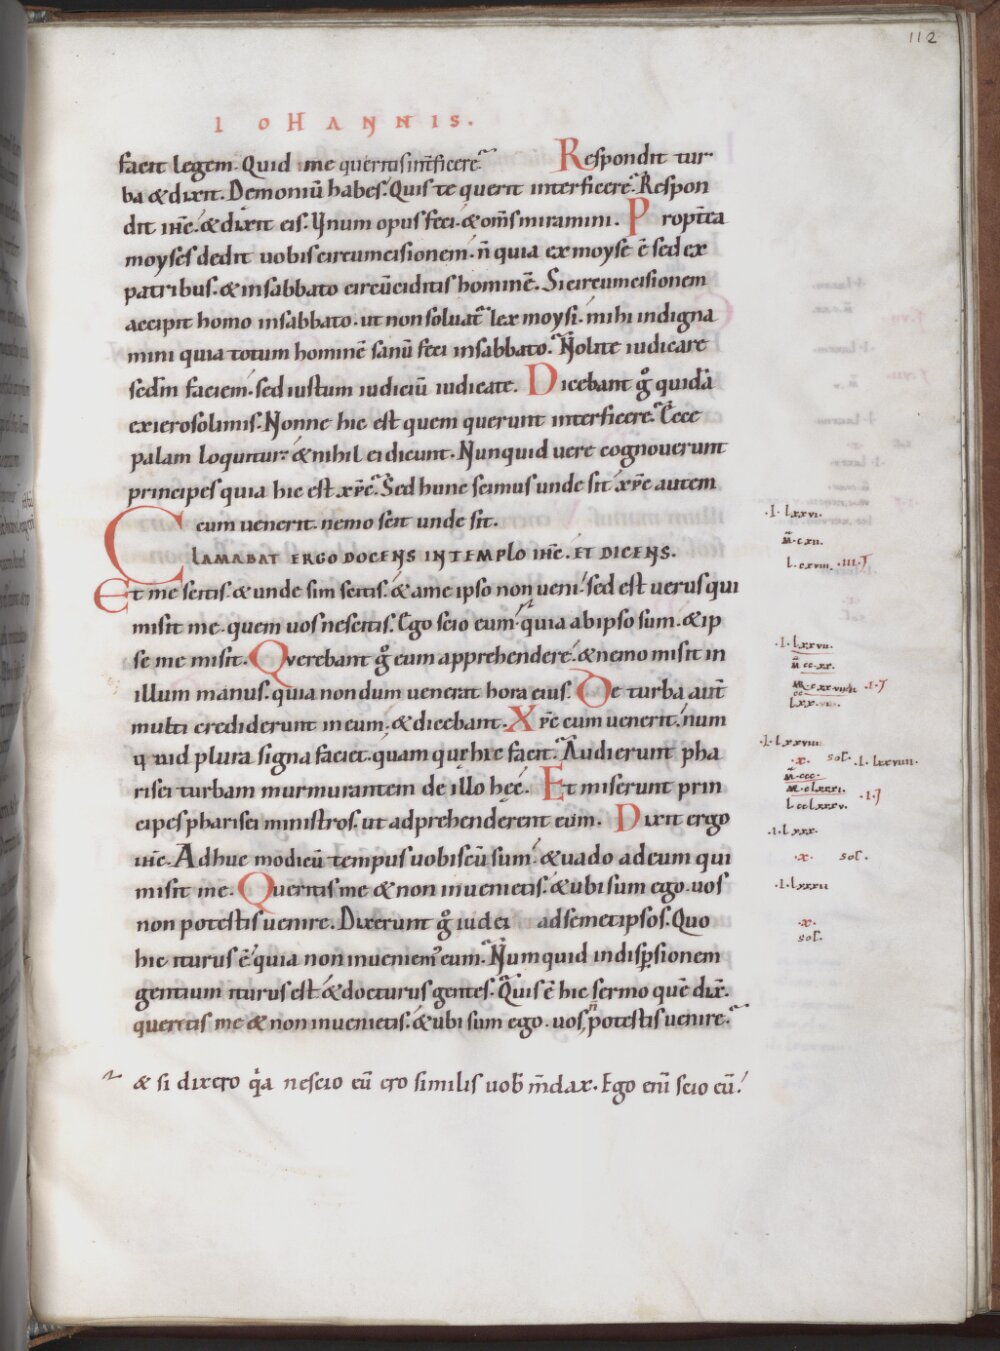 112
IOHANNIS.
facit legem. Quid me queritis int̄ficere? Respondit tur
ba & dixit. Demoniū habes. Quis te querit interficere? Respon
dit ihc̄. & dixit eis. Vnum opus feci. & om̄s miramini. Propt̄ea
moyses dedit uobis circumcisionem. n̄ quia ex moyse ē sed ex
patribus. & insabbato circūciditis hominē. Si circumcisionem
accipit homo insabbato. ut non soluat̄ lex moysi. mihi indigna
mini quia totum hominē sanū feci insabbato? Nolite iudicare
sedm̄ faciem. sed iustum iudiciū iudicate. Dicebant g̊ quidā
exierosolimis. Nonne hic est quem querunt interficere? Ecce
palam loquitur. & nihil ei dicunt. Nunquid uere cognouerunt
principes quia hic est xp̄c? Sed hunc scimus unde sit. xp̄c autem
cum uenerit. nemo scit unde sit.
CLAMABAT ERGO DOCENS IN TEMPLO IHC̄. ET DICENS.
Et me scitis. & unde sim scitis. & ame ipso non ueni. sed est uerus qui
misit me. quem uos nescitis. Ego scio eum. quia abipso sum. & ip
se me misit. Querebant g̊ eum apprehendere. & nemo misit in
illum manus. quia nondum uenerat hora eius. De turba aut̄
multi crediderunt in eum. & dicebant. Xp̄c cum uenerit. num
quid plura signa faciet. quam que hic facit? Audierunt pha
risei turbam murmurantem de illo hec. Et miserunt prin
cipes pharisei ministros. ut adprehenderent eum. Dixit ergo
ihc̄. Adhuc modicū tempus uobiscū sum. & uado adeum qui
misit me. Queritis me & non inuenietis. & ubi sum ego. uos
non potestis uenire. Dixerunt g̊ iudei adsemetipsos. Quo
hic iturus ē. quia non inueniem᷒ eum? Numquid indisp̄sionem
gentium iturus est & docturus gentes? Quis ē hic sermo quē dix̄.
queretis me & non inuenietis. & ubi sum ego. uos n̄ potestis uenire?
& si dixero q̇a nescio eū ero similis uob̄ m̄dax. Ego enī scio eū.
.I. lxxvi.
m̄. cxii.
l. cxviii. .III.
.I. lxxvii.
m̄ cc. xx.
.I.
.I. lxxviii.
.x. sol̄. .I. lxxviiii.
m̄. ccc.
.I.
l. cclxxxv.
.I. lxxx.
.x. sol̄.
.I. lxxxii
.x.
sol̄.